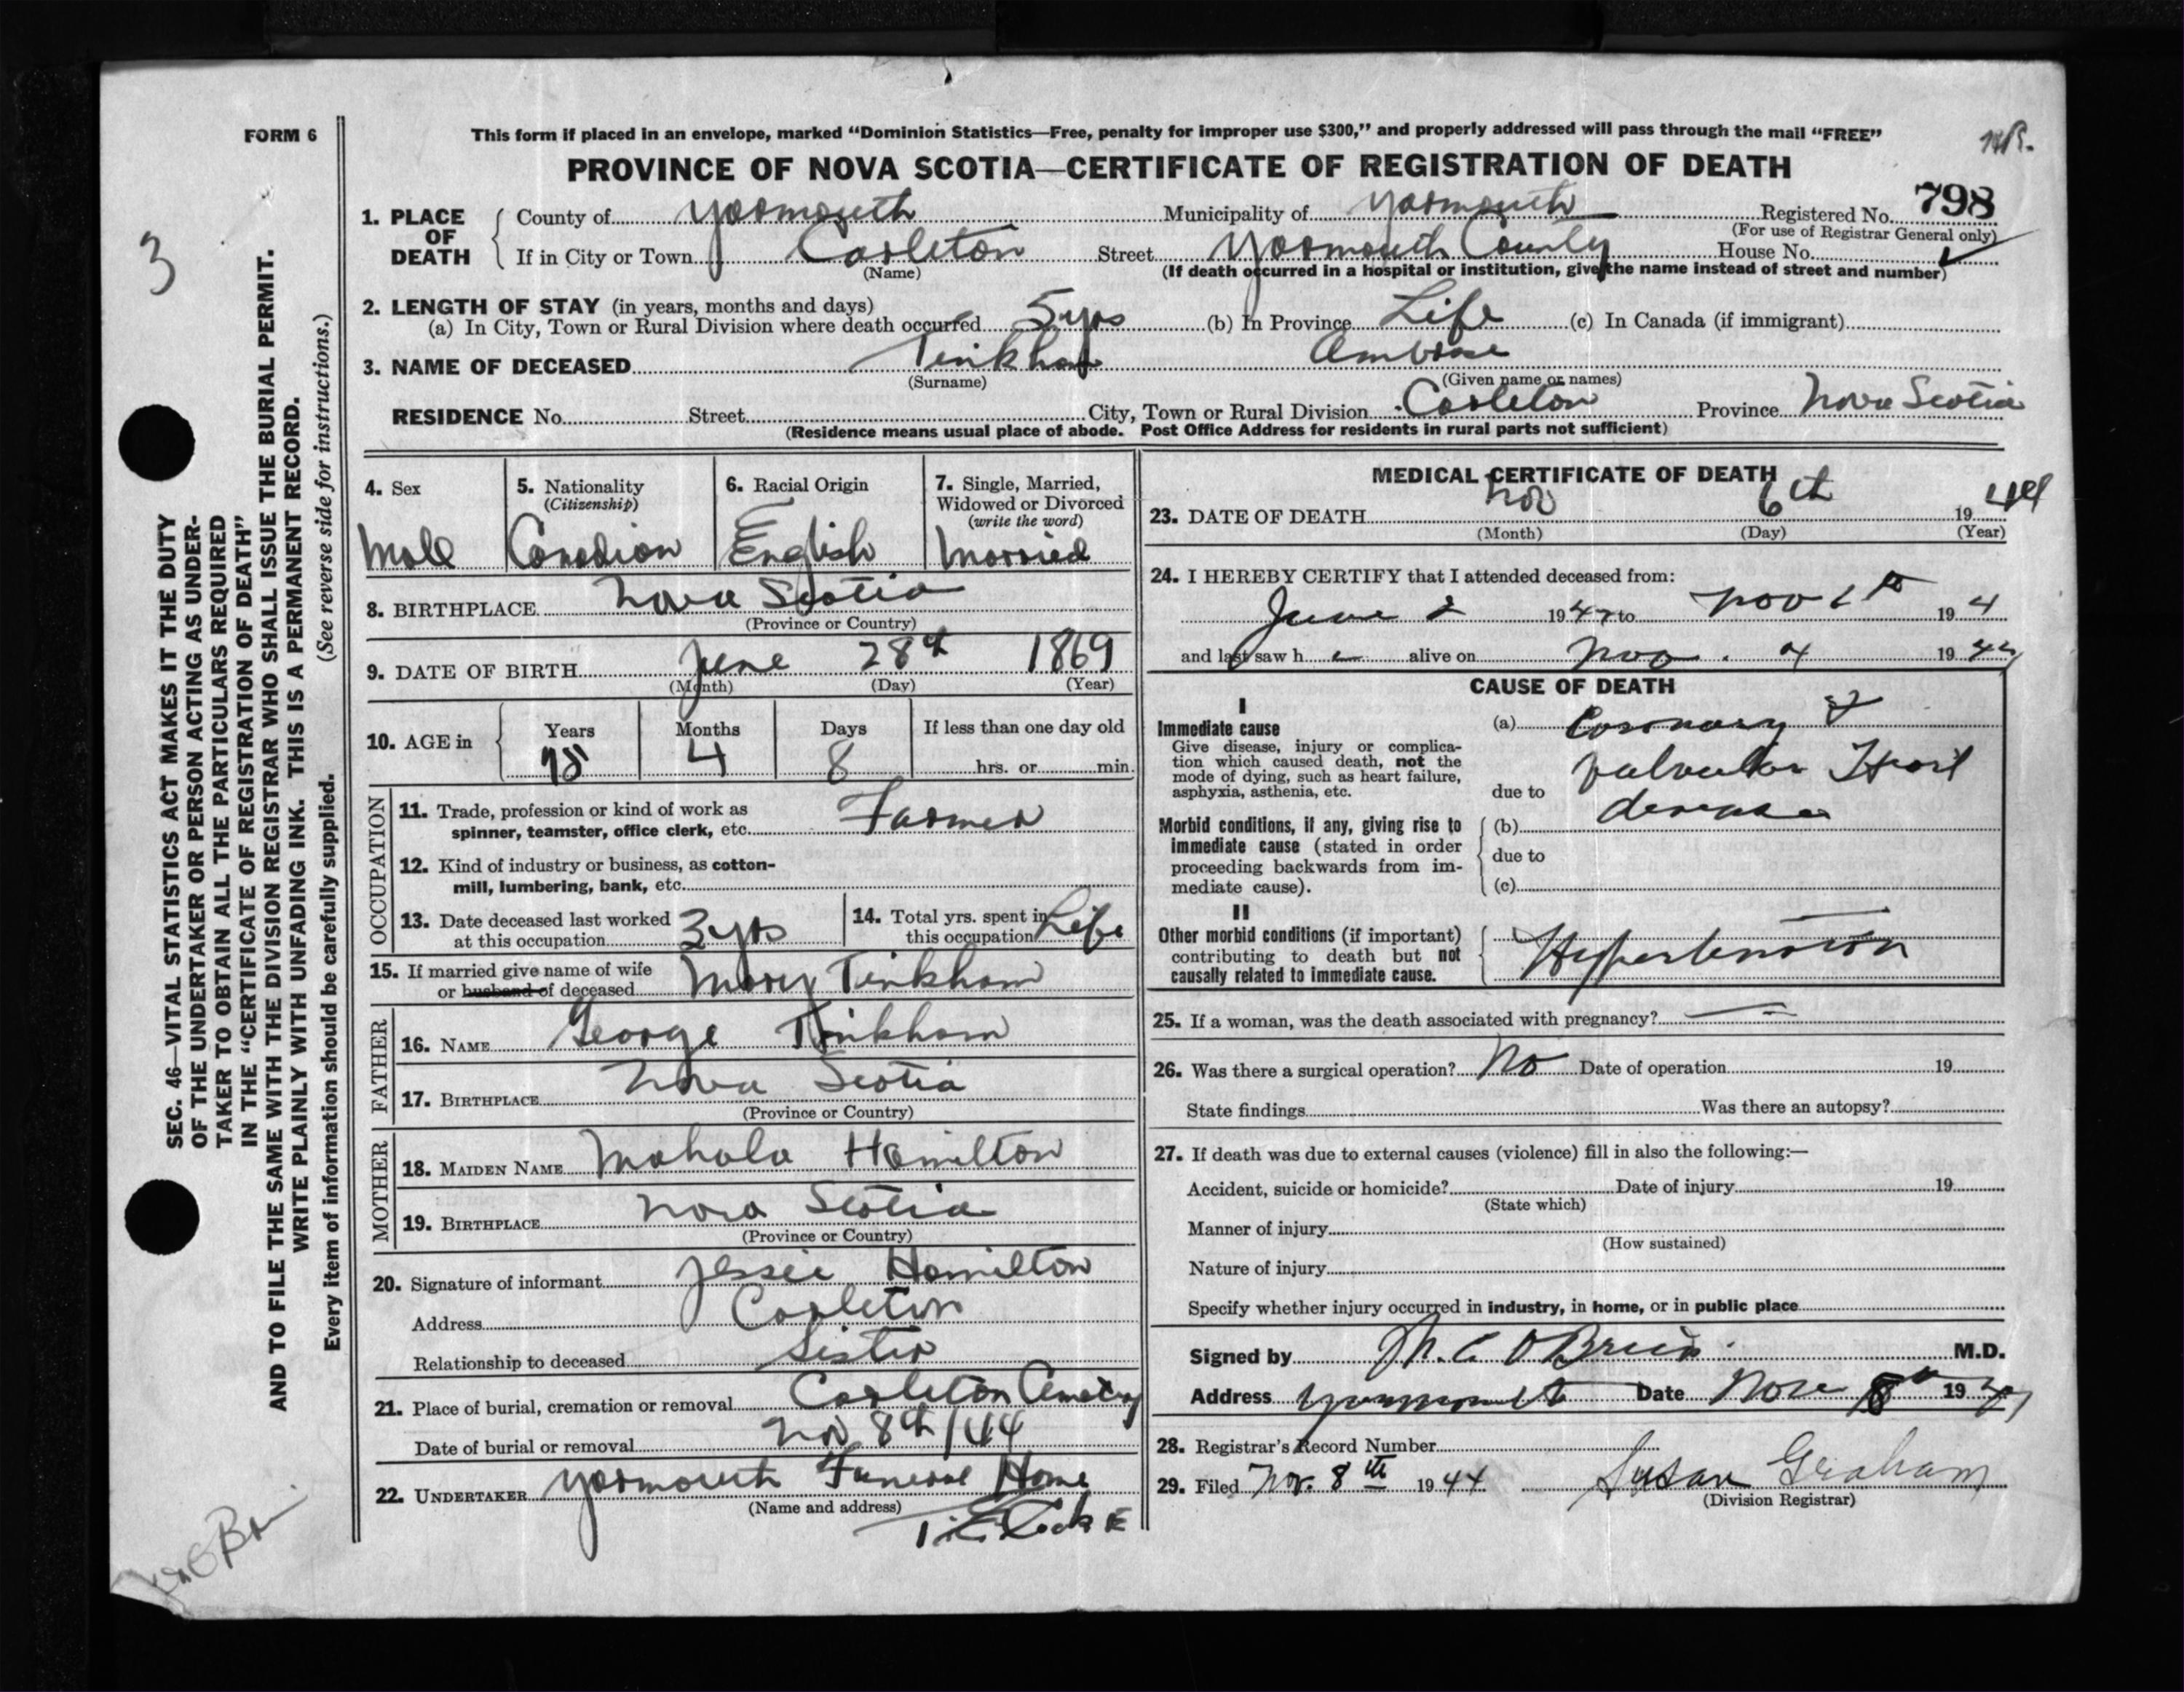 FORM 6
This form if placed in an envelope, marked “Dominion Statistics—Free, penalty for improper use $300,” and properly addressed will pass through the mail “FREE”
PROVINCE OF NOVA SCOTIA—CERTIFICATE OF REGISTRATION OF DEATH
3
SEC. 46—VITAL STATISTICS ACT MAKES IT THE DUTY
OF THE UNDERTAKER OR PERSON ACTING AS UNDER-
TAKER TO OBTAIN ALL THE PARTICULARS REQUIRED
IN THE “CERTIFICATE OF REGISTRATION OF DEATH”
AND TO FILE THE SAME WITH THE DIVISION REGISTRAR WHO SHALL ISSUE THE BURIAL PERMIT.
WRITE PLAINLY WITH UNFADING INK. THIS IS A PERMANENT RECORD.
Every item of information should be carefully supplied. (See reverse side for instructions.)
1. PLACE OF DEATH
County of Yarmouth Municipality of Yarmouth Registered No. 798
(For use of Registrar General only)
If in City or Town Carleton Street Yarmouth County House No.
(Name) (If death occurred in a hospital or institution, give the name instead of street and number)
2. LENGTH OF STAY (in years, months and days)
(a) In City, Town or Rural Division where death occurred 5 yrs (b) In Province Life (c) In Canada (if immigrant)
3. NAME OF DECEASED Tinkham Ambrose
(Surname) (Given name or names)
RESIDENCE No. Street City, Town or Rural Division Carleton Province Nova Scotia
(Residence means usual place of abode. Post Office Address for residents in rural parts not sufficient)
4. Sex
Male
5. Nationality
(Citizenship)
Canadian
6. Racial Origin
English
7. Single, Married,
Widowed or Divorced
(write the word)
Married
8. BIRTHPLACE Nova Scotia
(Province or Country)
9. DATE OF BIRTH June 28th 1869
(Month) (Day) (Year)
10. AGE in
Years Months Days If less than one day old
75 4 8 hrs. or min.
OCCUPATION
11. Trade, profession or kind of work as
spinner, teamster, office clerk, etc. Farmer
12. Kind of industry or business, as cotton-
mill, lumbering, bank, etc.
13. Date deceased last worked
at this occupation 3 yrs
14. Total yrs. spent in
this occupation Life
15. If married give name of wife
or husband of deceased Mary Tinkham
FATHER
16. NAME George Tinkham
17. BIRTHPLACE Nova Scotia
(Province or Country)
MOTHER
18. MAIDEN NAME Mahala Hamilton
19. BIRTHPLACE Nova Scotia
(Province or Country)
20. Signature of informant Jessie Hamilton
Address Carleton
Relationship to deceased Sister
21. Place of burial, cremation or removal Carleton Cemetry
Date of burial or removal Nov 8th/44
22. UNDERTAKER Yarmouth Funeral Home
(Name and address)
MEDICAL CERTIFICATE OF DEATH
23. DATE OF DEATH Nov 6th 1944
(Month) (Day) (Year)
24. I HEREBY CERTIFY that I attended deceased from:
June 2 19 to Nov 6th 194
and last saw h alive on Nov. 4 1944
CAUSE OF DEATH
I
Immediate cause
Give disease, injury or complica-
tion which caused death, not the
mode of dying, such as heart failure,
asphyxia, asthenia, etc.
(a) Coronary &
valvular Heart
due to
disease
Morbid conditions, if any, giving rise to
immediate cause (stated in order
proceeding backwards from im-
mediate cause).
(b)
due to
(c)
II
Other morbid conditions (if important)
contributing to death but not
causally related to immediate cause.
Hypertension
25. If a woman, was the death associated with pregnancy?
26. Was there a surgical operation? No Date of operation 19
State findings Was there an autopsy?
27. If death was due to external causes (violence) fill in also the following:—
Accident, suicide or homicide? Date of injury 19
(State which)
Manner of injury
(How sustained)
Nature of injury
Specify whether injury occurred in industry, in home, or in public place
Signed by M. C. O'Brien M.D.
Address Yarmouth Date Nov 8th 1944
28. Registrar's Record Number
29. Filed Nov. 8th 1944 Susan Graham
(Division Registrar)